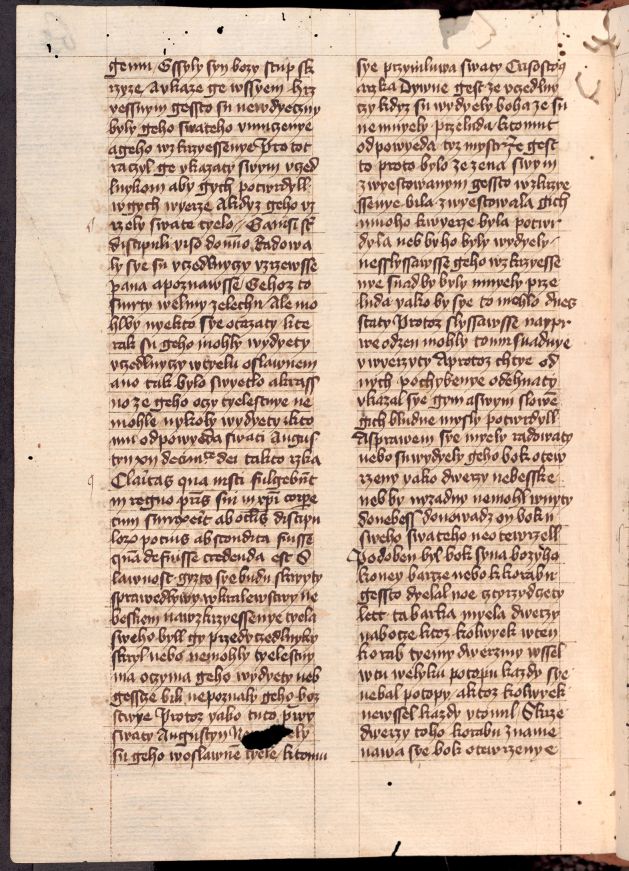 gemu / Gssyly syn bozy stup sk
ryze / Aukaze ge wssyem hrz
yessnym gessto su newdyeczny
byly geho swateho vmuczenye
ageho wzkrzyessenye Pro tot
raczyl ge vkazaty swym vczed
lnykom aby gych potwrdyll
wgych wyerze Akdyz geho vz
rzely swate tyelo / Gauisi sūt
discipuli viso domno, Radowa
ly sye su vczedlnyczy vzrzewsse
pana apoznawsse Gehoz to
smrty welmy zelechu Ale mo
hlby nyekto sye otazaty kte
rak su geho mohly wydyety
vczedlnyczy wtyelu oslawnem
ano tak bylo swyetlo akrass
no ze geho oczy tyelestne ne
mohle nykoly wydyety kto
mu odpowyeda swati Augus
tyn xii de ciuita dei takto rzka
Claritas qua iusti fulgebūt
in regno pris sui in xpi corpe
cum surrexit ab oclis discipu
lorum potius abscondita fuisse
quā defuisse credenda est S
lawnost gyzto sye budu skwyty
sprawedlywy wkralewstwy ne
beskem nawzkrzyessenye tyela
sweho byll gy przedyczedlnyky
skryl nebo nemohly tyelestny
ma oczyma geho wydyety neb
gessze bili nepoznaly geho boz
stwye Protoz yako tuto prwy
swaty Augustyn
su geho woslawnē tyele / ktomu
sye przymluwa swaty Crisosto
rzka Dywne gest ze vczedlny
czy kdyz su wydyely boha ze su
ne mnyely przeluda / ktomut
odpowyeda tyz mystrze gest
to proto bylo ze zena swym
zwyestowanym gessto wzkrzye
ssenye bila zwyestowala gich
mnoho kwyerze byla potwr
dyla neb byho byly wydyely
nesslyssawsse geho wzkrzyesse
nye snad by byly mnyely prze
luda yako by sye to mohlo dnes
staty Protoz slyssawsse naypr
we od zen mohly tomu snadnye
vwyerzyty Aprotoz chtye od
nych pochybenye odehnaty
vkazal sye gym aswym slowē
gich bludne mysly potwrdyll
Asprawem sye myely radowaty
nebo su wydyely geho bok otew
rzeny yako dwerzy nebesske
neb by nyzadny nemohl wnyty
donebess donowadz on bok u
sweho swateho neotewrzell
Podoben byl bok syna bozyho
koney barze nebo k korabu
gessto dyelal noe cztyrzydczety
lett ta barka myela dwerzy
naboce ktoz kolywyek wten
korab tyemy dwerzmy wssel
wtu welyku potopu kazdy sye
nebal potopy aktoz kolywyek
newssel kazdy vtonul Skrze
dwerzy toho korabu zname
nawa sye bok otewrzenye